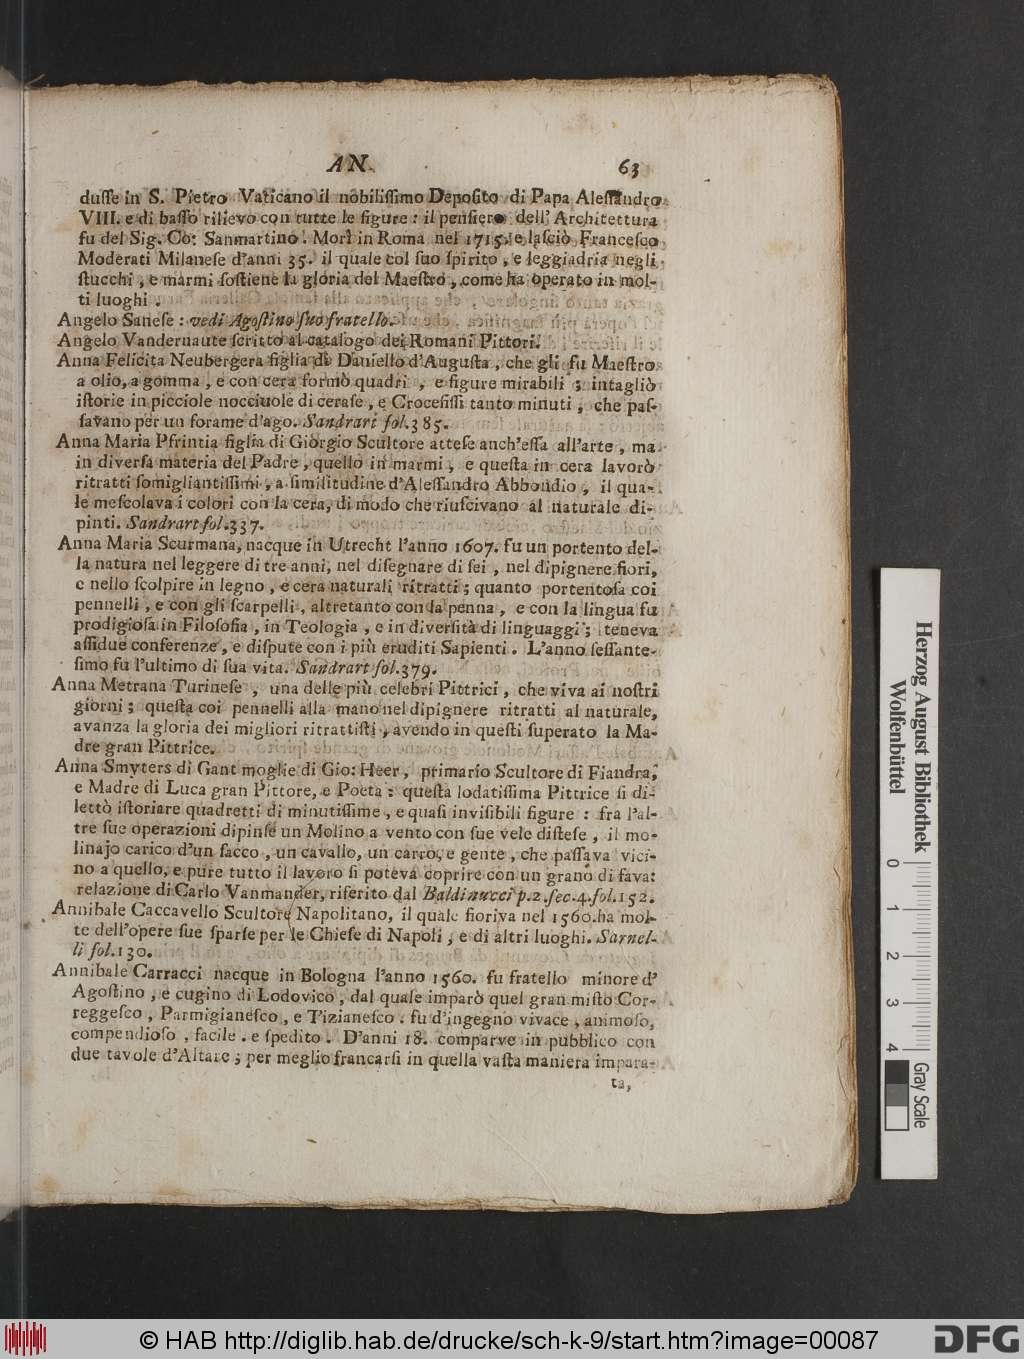 AN. 63
duſſe in S. Pietro Vaticano il nobiliſſimo Depoſito di Papa Aleſſandro
VIII. e di baſſo rilievo con tutte le figure : il penſiero dell' Architettura
fu del Sig. Co: Sanmartino. Morì in Roma nel 1715. e laſciò Franceſco
Moderati Milaneſe d'anni 35. il quale col ſuo ſpirito , e leggiadria negli
ſtucchi , e marmi ſoſtiene la gloria del Maeſtro , come ha operato in mol-
ti luoghi .
Angelo Saneſe : vedi Agoſtino ſuo fratello.
Angelo Vandernaute ſcritto al catalogo dei Romani Pittori.
Anna Felicita Neubergera figlia di Daniello d'Auguſta , che gli fu Maeſtro
a olio, a gomma , e con cera formò quadri , e figure mirabili ; intagliò
iſtorie in picciole nocciuole di ceraſe , e Crocefiſſi tanto minuti , che paſ-
ſavano per un forame d'ago. Sandrart fol.385.
Anna Maria Pfrintia figlia di Giorgio Scultore atteſe anch'eſſa all'arte , ma
in diverſa materia del Padre , quello in marmi , e queſta in cera lavorò
ritratti ſomigliantiſſimi , a ſimilitudine d'Aleſſandro Abbondio , il qua-
le meſcolava i colori con la cera, di modo che riuſcivano al naturale di-
pinti. Sandrart fol.337.
Anna Maria Scurmana, nacque in Utrecht l'anno 1607. fu un portento del-
la natura nel leggere di tre anni, nel diſegnare di ſei , nel dipignere fiori,
e nello ſcolpire in legno , e cera naturali ritratti ; quanto portentoſa coi
pennelli , e con gli ſcarpelli , altretanto con la penna , e con la lingua fu
prodigioſa in Filoſofia , in Teologia , e in diverſità di linguaggi ; teneva
aſſidue conferenze , e diſpute con i più eruditi Sapienti . L'anno ſeſſante-
ſimo fu l'ultimo di ſua vita. Sandrart fol.379.
Anna Metrana Turineſe , una delle più celebri Pittrici , che viva ai noſtri
giorni ; queſta coi pennelli alla mano nel dipignere ritratti al naturale,
avanza la gloria dei migliori ritrattiſti , avendo in queſti ſuperato la Ma-
dre gran Pittrice.
Anna Smyters di Gant moglie di Gio: Heer , primario Scultore di Fiandra,
e Madre di Luca gran Pittore, e Poeta : queſta lodatiſſima Pittrice ſi di-
lettò iſtoriare quadretti di minutiſſime , e quaſi inviſibili figure : fra l'al-
tre ſue operazioni dipinſe un Molino a vento con ſue vele diſteſe , il mo-
linajo carico d'un ſacco , un cavallo, un carro, e gente , che paſſava vici-
no a quello, e pure tutto il lavoro ſi poteva coprire con un grano di fava:
relazione di Carlo Vanmander, riferito dal Baldinucci p.2. ſec.4. fol.152.
Annibale Caccavello Scultore Napolitano, il quale fioriva nel 1560. ha mol-
te dell'opere ſue ſparſe per le Chieſe di Napoli , e di altri luoghi. Sarnel-
li fol.130.
Annibale Carracci nacque in Bologna l'anno 1560. fu fratello minore d'
Agoſtino , e cugino di Lodovico , dal quale imparò quel gran miſto Cor-
reggeſco , Parmigianeſco , e Tizianeſco : fu d'ingegno vivace , animoſo,
compendioſo , facile . e ſpedito . D'anni 18. comparve in pubblico con
due tavole d'Altare ; per meglio francarſi in quella vaſta maniera impara-
ta,
Herzog August Bibliothek
Wolfenbüttel
0 1 2 3 4
Gray Scale
© HAB http://diglib.hab.de/drucke/sch-k-9/start.htm?image=00087
DFG